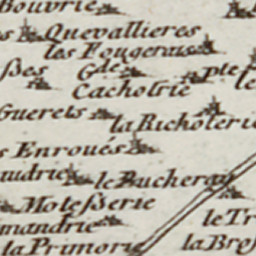 Bouvrie
s Quevallieres
les Fougerais
ßes Gde. Pte.
Cachotrie le
Guerets
la Richoterie
s Enroues
audrie le Bucherau
Moteßerie
mandrie le Tr
la Primorie la Bros